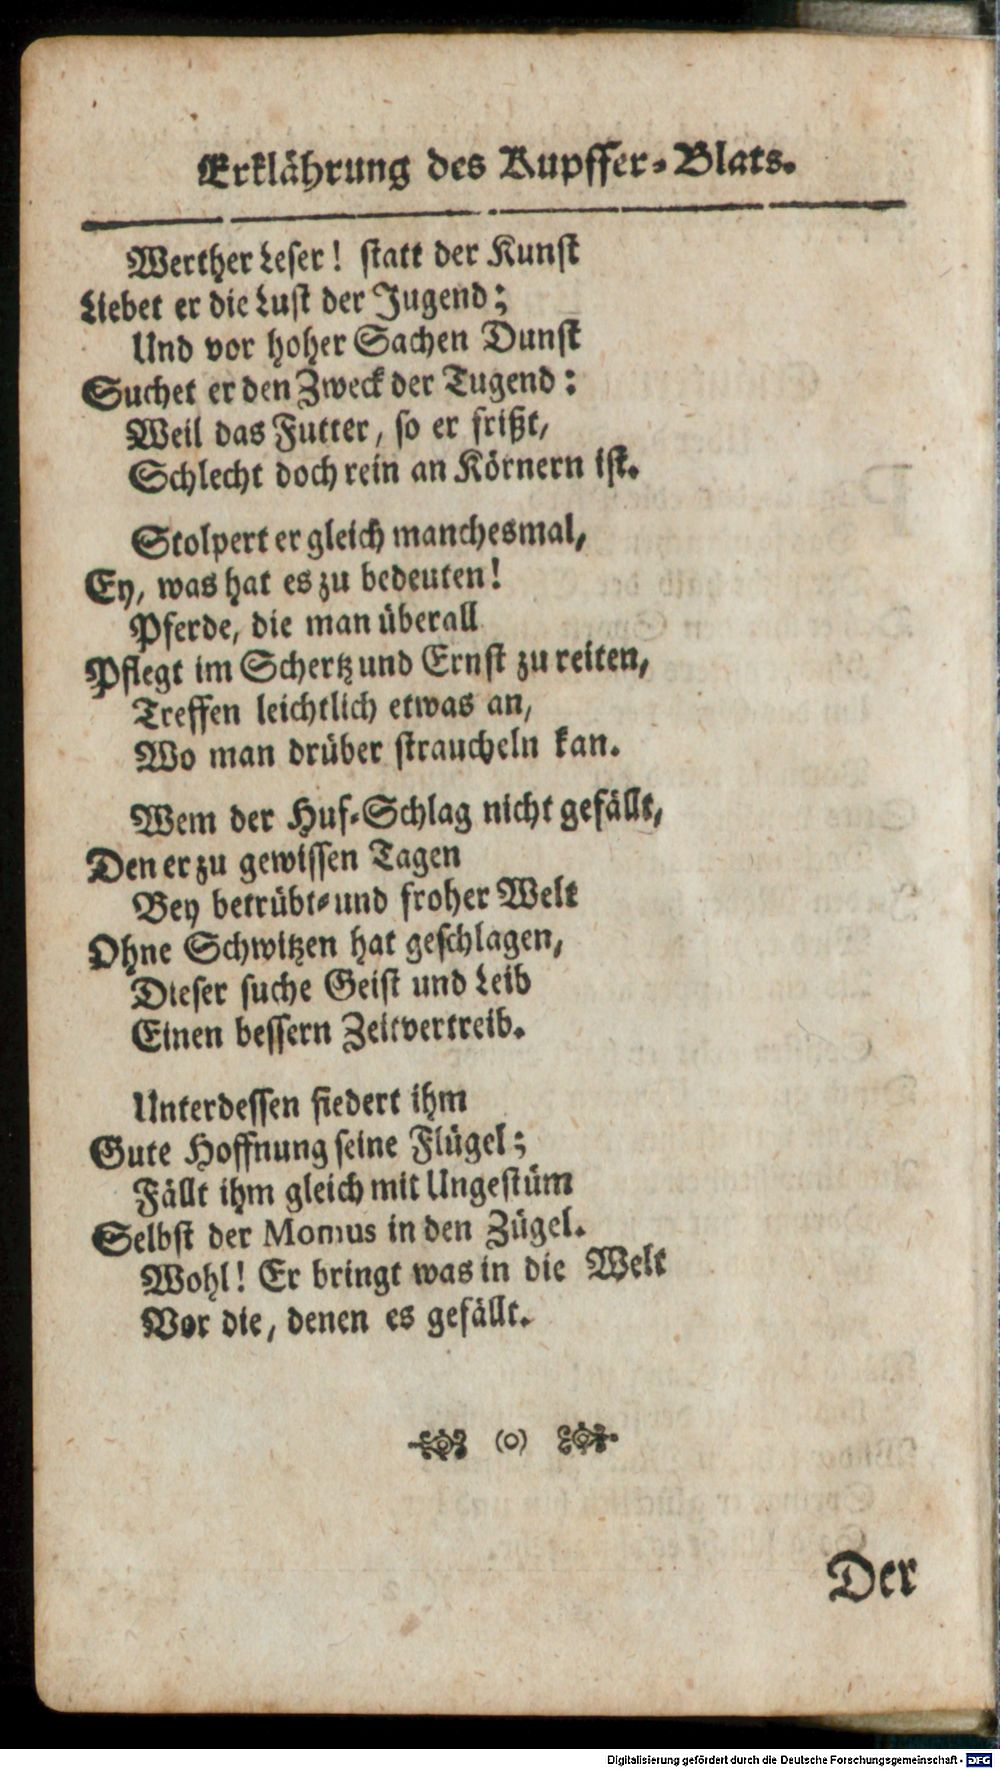 Erklährung des Kupffer-Blats.
Werther Leser! statt der Kunst
Liebet er die Lust der Jugend;
Und vor hoher Sachen Dunst
Suchet er den Zweck der Tugend:
Weil das Futter, so er frißt,
Schlecht doch rein an Körnern ist.
Stolpert er gleich manchesmal,
Ey, was hat es zu bedeuten!
Pferde, die man überall
Pflegt im Schertz und Ernst zu reiten,
Treffen leichtlich etwas an,
Wo man drüber straucheln kan.
Wem der Huf-Schlag nicht gefällt,
Den er zu gewissen Tagen
Bey betrübt-und froher Welt
Ohne Schwitzen hat geschlagen,
Dieser suche Geist und Leib
Einen bessern Zeitvertreib.
Unterdessen fiedert ihm
Gute Hoffnung seine Flügel;
Fällt ihm gleich mit Ungestüm
Selbst der Momus in den Zügel.
Wohl! Er bringt was in die Welt
Vor die, denen es gefällt.
(o)
Der
Digitalisierung gefördert durch die Deutsche Forschungsgemeinschaft - DFG